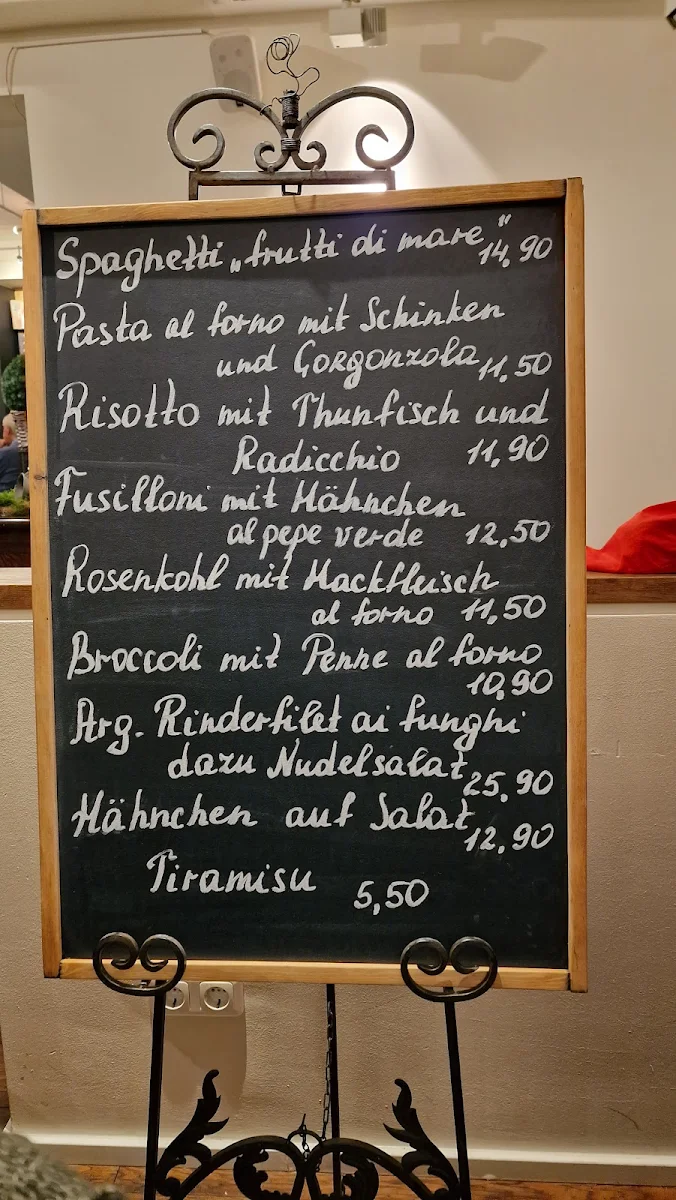 Spaghetti „frutti di mare“ 14,90
Pasta al forno mit Schinken
und Gorgonzola 11,50
Risotto mit Thunfisch und
Radicchio 11,90
Fusilloni mit Hähnchen
al pepe verde 12,50
Rosenkohl mit Hackfleisch
al forno 11,50
Broccoli mit Penne al forno
10,90
Arg. Rinderfilet ai funghi
dazu Nudelsalat 25,90
Hähnchen auf Salat 12,90
Tiramisu 5,50